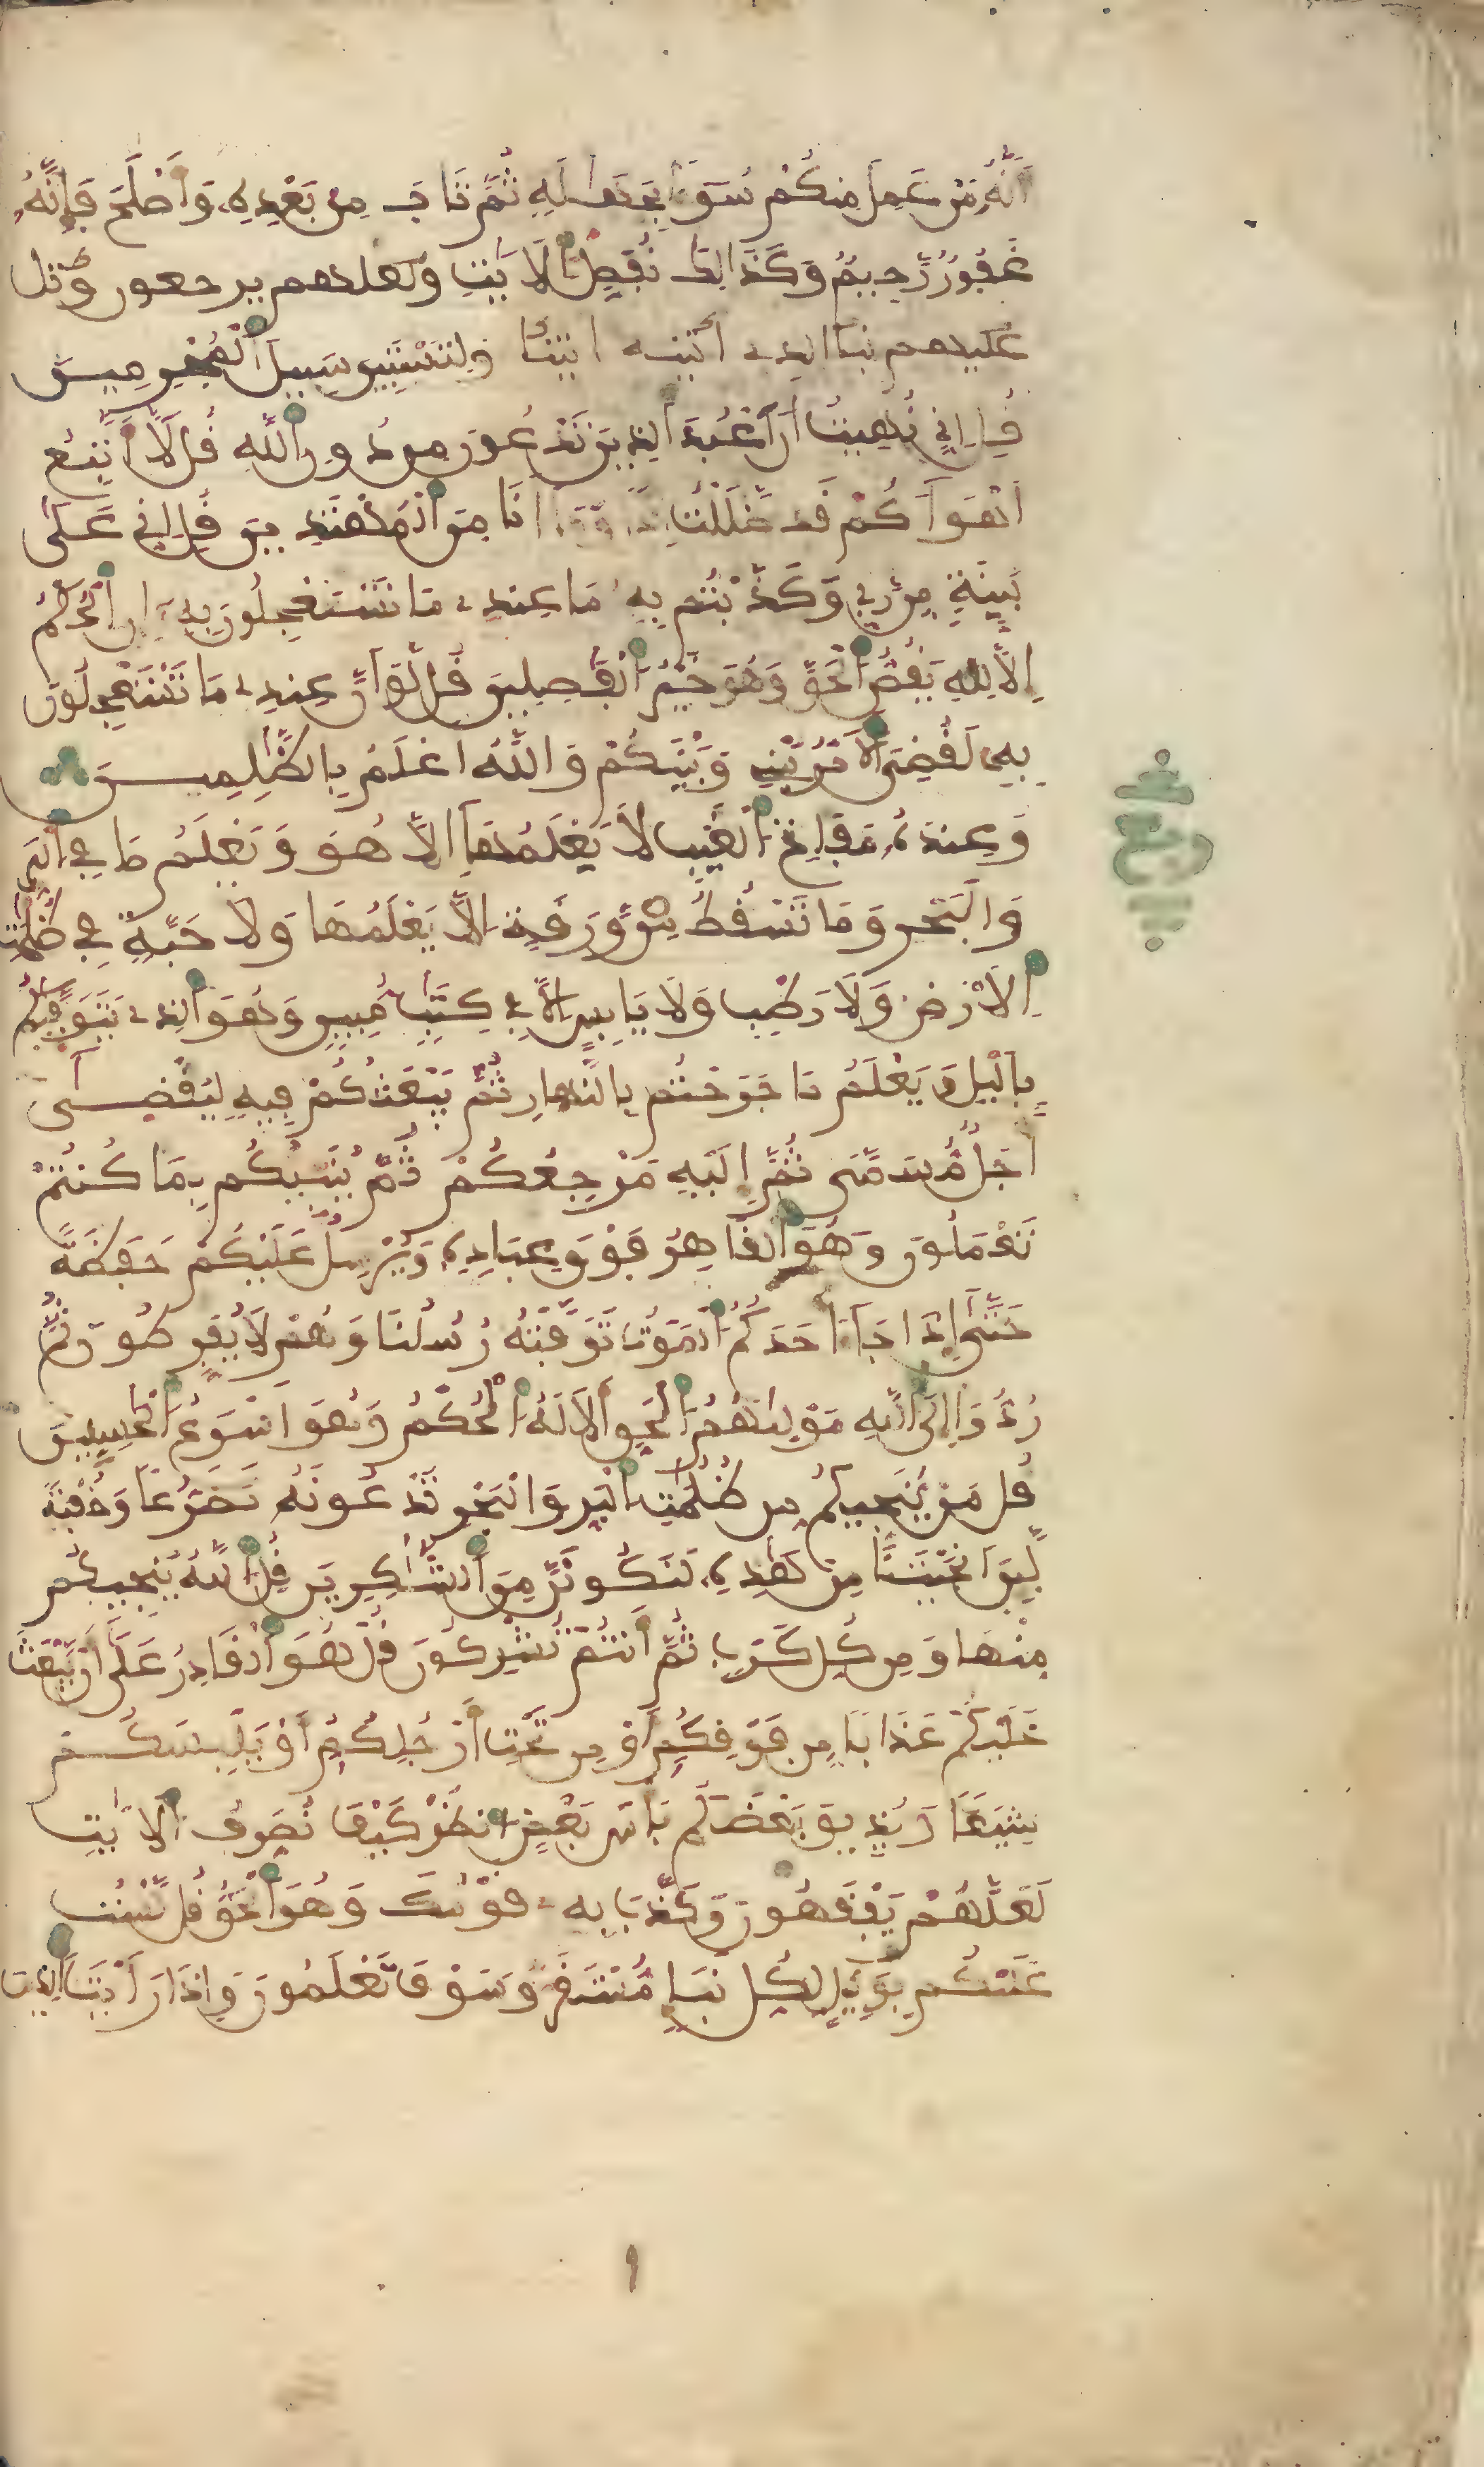 أَنَّهُ مَنْ عَمِلَ مِنكُمْ سُوءًا بِجَهَٰلَةٍ ثُمَّ تَابَ مِنۢ بَعْدِهِۦ وَأَصْلَحَ فَإِنَّهُۥ
غَفُورٌ رَّحِيمٌ وَكَذَٰلِكَ نُفَصِّلُ الْأَيَٰتِ ولعلهم يرجعون واتل
عليهم نبأ الذي آتينه ايتنا وَلِتَسْتَبِينَ سَبِيلَ الْمُجْرِمِينَ
قُلْ إِنِّي نُهِيتُ أَنْ أَعْبُدَ الَّذِينَ تَدْعُونَ مِن دُونِ اللَّهِ قُل لَّا أَتَّبِعُ
أَهْوَآءَكُمْ قَد ضَّلَلْتُ إِذًا وَمَا أَنَا مِنَ الْمُهْتَدِينَ قُلْ إِنِّي عَلَىٰ
بَيِّنَةٍ مِّن رَّبِّي وَكَذَّبْتُم بِهِ مَا عِندِي مَا تَسْتَعْجِلُونَ بِهِ إِنِ الْحُكْمُ
إِلَّا لِلَّهِ يَقُصُّ الْحَقَّ وَهُوَ خَيْرُ الْفَٰصِلِينَ قُل لَّوْ أَنَّ عِندِي مَا تَسْتَعْجِلُونَ
بِهِ لَقُضِيَ الْأَمْرُ بَيْنِي وَبَيْنَكُمْ وَاللَّهُ أَعْلَمُ بِالظَّٰلِمِينَ
وَعِندَهُۥ مَفَاتِحُ الْغَيْبِ لَا يَعْلَمُهَآ إِلَّا هُوَ وَيَعْلَمُ مَا فِي الْبَرِّ
وَالْبَحْرِ وَمَا تَسْقُطُ مِن وَرَقَةٍ إِلَّا يَعْلَمُهَا وَلَا حَبَّةٍ فِي ظُلُمَٰتِ
الْأَرْضِ وَلَا رَطْبٍ وَلَا يَابِسٍ إِلَّا فِي كِتَٰبٍ مُّبِينٍ وَهُوَ الَّذِي يَتَوَفَّيٰكُم
بِالَّيْلِ وَيَعْلَمُ مَا جَرَحْتُم بِالنَّهَارِ ثُمَّ يَبْعَثُكُمْ فِيهِ لِيُقْضَىٰ
أَجَلٌ مُّسَمًّى ثُمَّ إِلَيْهِ مَرْجِعُكُمْ ثُمَّ يُنَبِّئُكُم بِمَا كُنتُمْ
تَعْمَلُونَ وَهُوَ الْقَاهِرُ فَوْقَ عِبَادِهِۦ وَيُرْسِلُ عَلَيْكُمْ حَفَظَةً
حَتَّىٰ إِذَا جَآءَ احَدَكُمُ الْمَوْتُ تَوَفَّتْهُ رُسُلُنَا وَهُمْ لَا يُفَرِّطُونَ ثُمَّ
رُدُّوا إِلَى اللَّهِ مَوْلَىٰهُمُ الْحَقِّ أَلَا لَهُ الْحُكْمُ وَهُوَ أَسْرَعُ الْحَٰسِبِينَ
قُلْ مَنْ يُنَجِّيكُم مِّن ظُلُمَٰتِ الْبَرِّ وَالْبَحْرِ تَدْعُونَهُ تَضَرُّعًا وَخُفْيَةً
لَّئِنْ أَنجَيْتَنَا مِنْ هَٰذِهِۦ لَنَكُونَنَّ مِنَ الشَّٰكِرِينَ قُلِ اللَّهُ يُنجِيكُم
مِّنْهَا وَمِن كُلِّ كَرْبٍ ثُمَّ أَنتُمْ تُشْرِكُونَ قُلْ هُوَ الْقَادِرُ عَلَىٰ أَن يَّبْعَثَ
عَلَيْكُمْ عَذَابًا مِّن فَوْقِكُمْ أَوْ مِن تَحْتِ أَرْجُلِكُمْ أَوْ يَلْبِسَكُمْ
شِيَعًا وَيُذِيقَ بَعْضَكُم بَأْسَ بَعْضٍ انظُرْ كَيْفَ نُصَرِّفُ الْأَيَٰتِ
لَعَلَّهُمْ يَفْقَهُونَ وَكَذَّبَ بِهِ قَوْمُكَ وَهُوَ الْحَقُّ قُل لَّسْتُ
عَلَيْكُم بِوَكِيلٍ لِّكُلِّ نَبَإٍ مُّسْتَقَرٌّ وَسَوْفَ تَعْلَمُونَ وَإِذَا رَأَيْتَ الَّذِينَ
ربع
٩